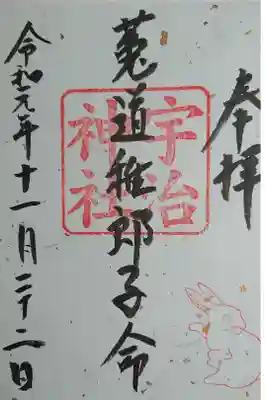 奉拝
菟道稚郎子命
宇治神社
令和元年十一月二十二日